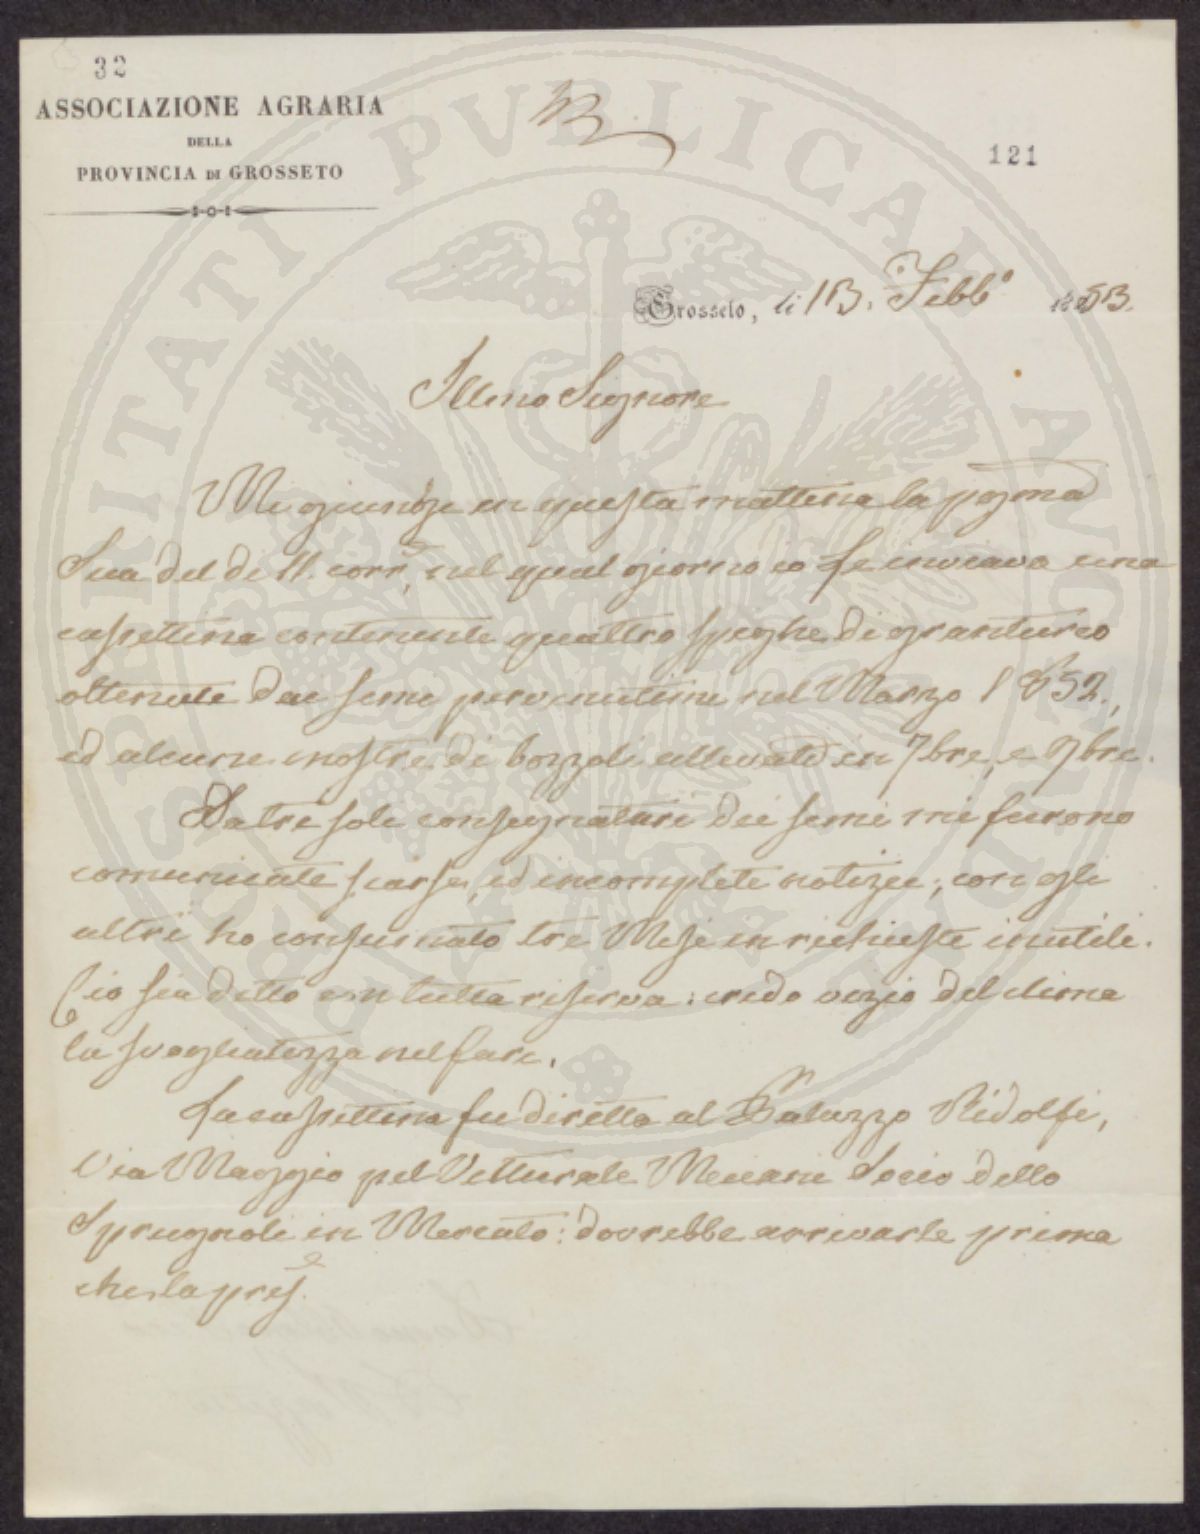 32
ASSOCIAZIONE AGRARIA
DELLA
PROVINCIA DI GROSSETO
121
Grosseto, li 13. Febb.o 1853.
Illmo Signore
Mi giunge in questa mattina la pregma
Sua del dì 11. corre, nel qual giorno io Le inviava una
cassettina contenente quattro spighe di granturco
ottenute dai semi pervenutimi nel Marzo 1852.,
ed alcune mostre di bozzoli allevati in 7bre, e 9bre.
Da tre soli consegnatari dei semi mi furono
comunicate scarse, ed incomplete notizie; con gli
altri ho consumato tre Mesi in richieste inutili.
Ciò sia detto con tutta riserva: credo vizio del clima
la svogliatezza nel fare.
La cassettina fu diretta al Palazzo Ridolfi,
Via Maggio pel Vetturale Socio dello
Sprugnoli in Mercato: dovrebbe arrivarle prima
che la prese.
PROSPERITATI PVBLICAE AVGENDAE